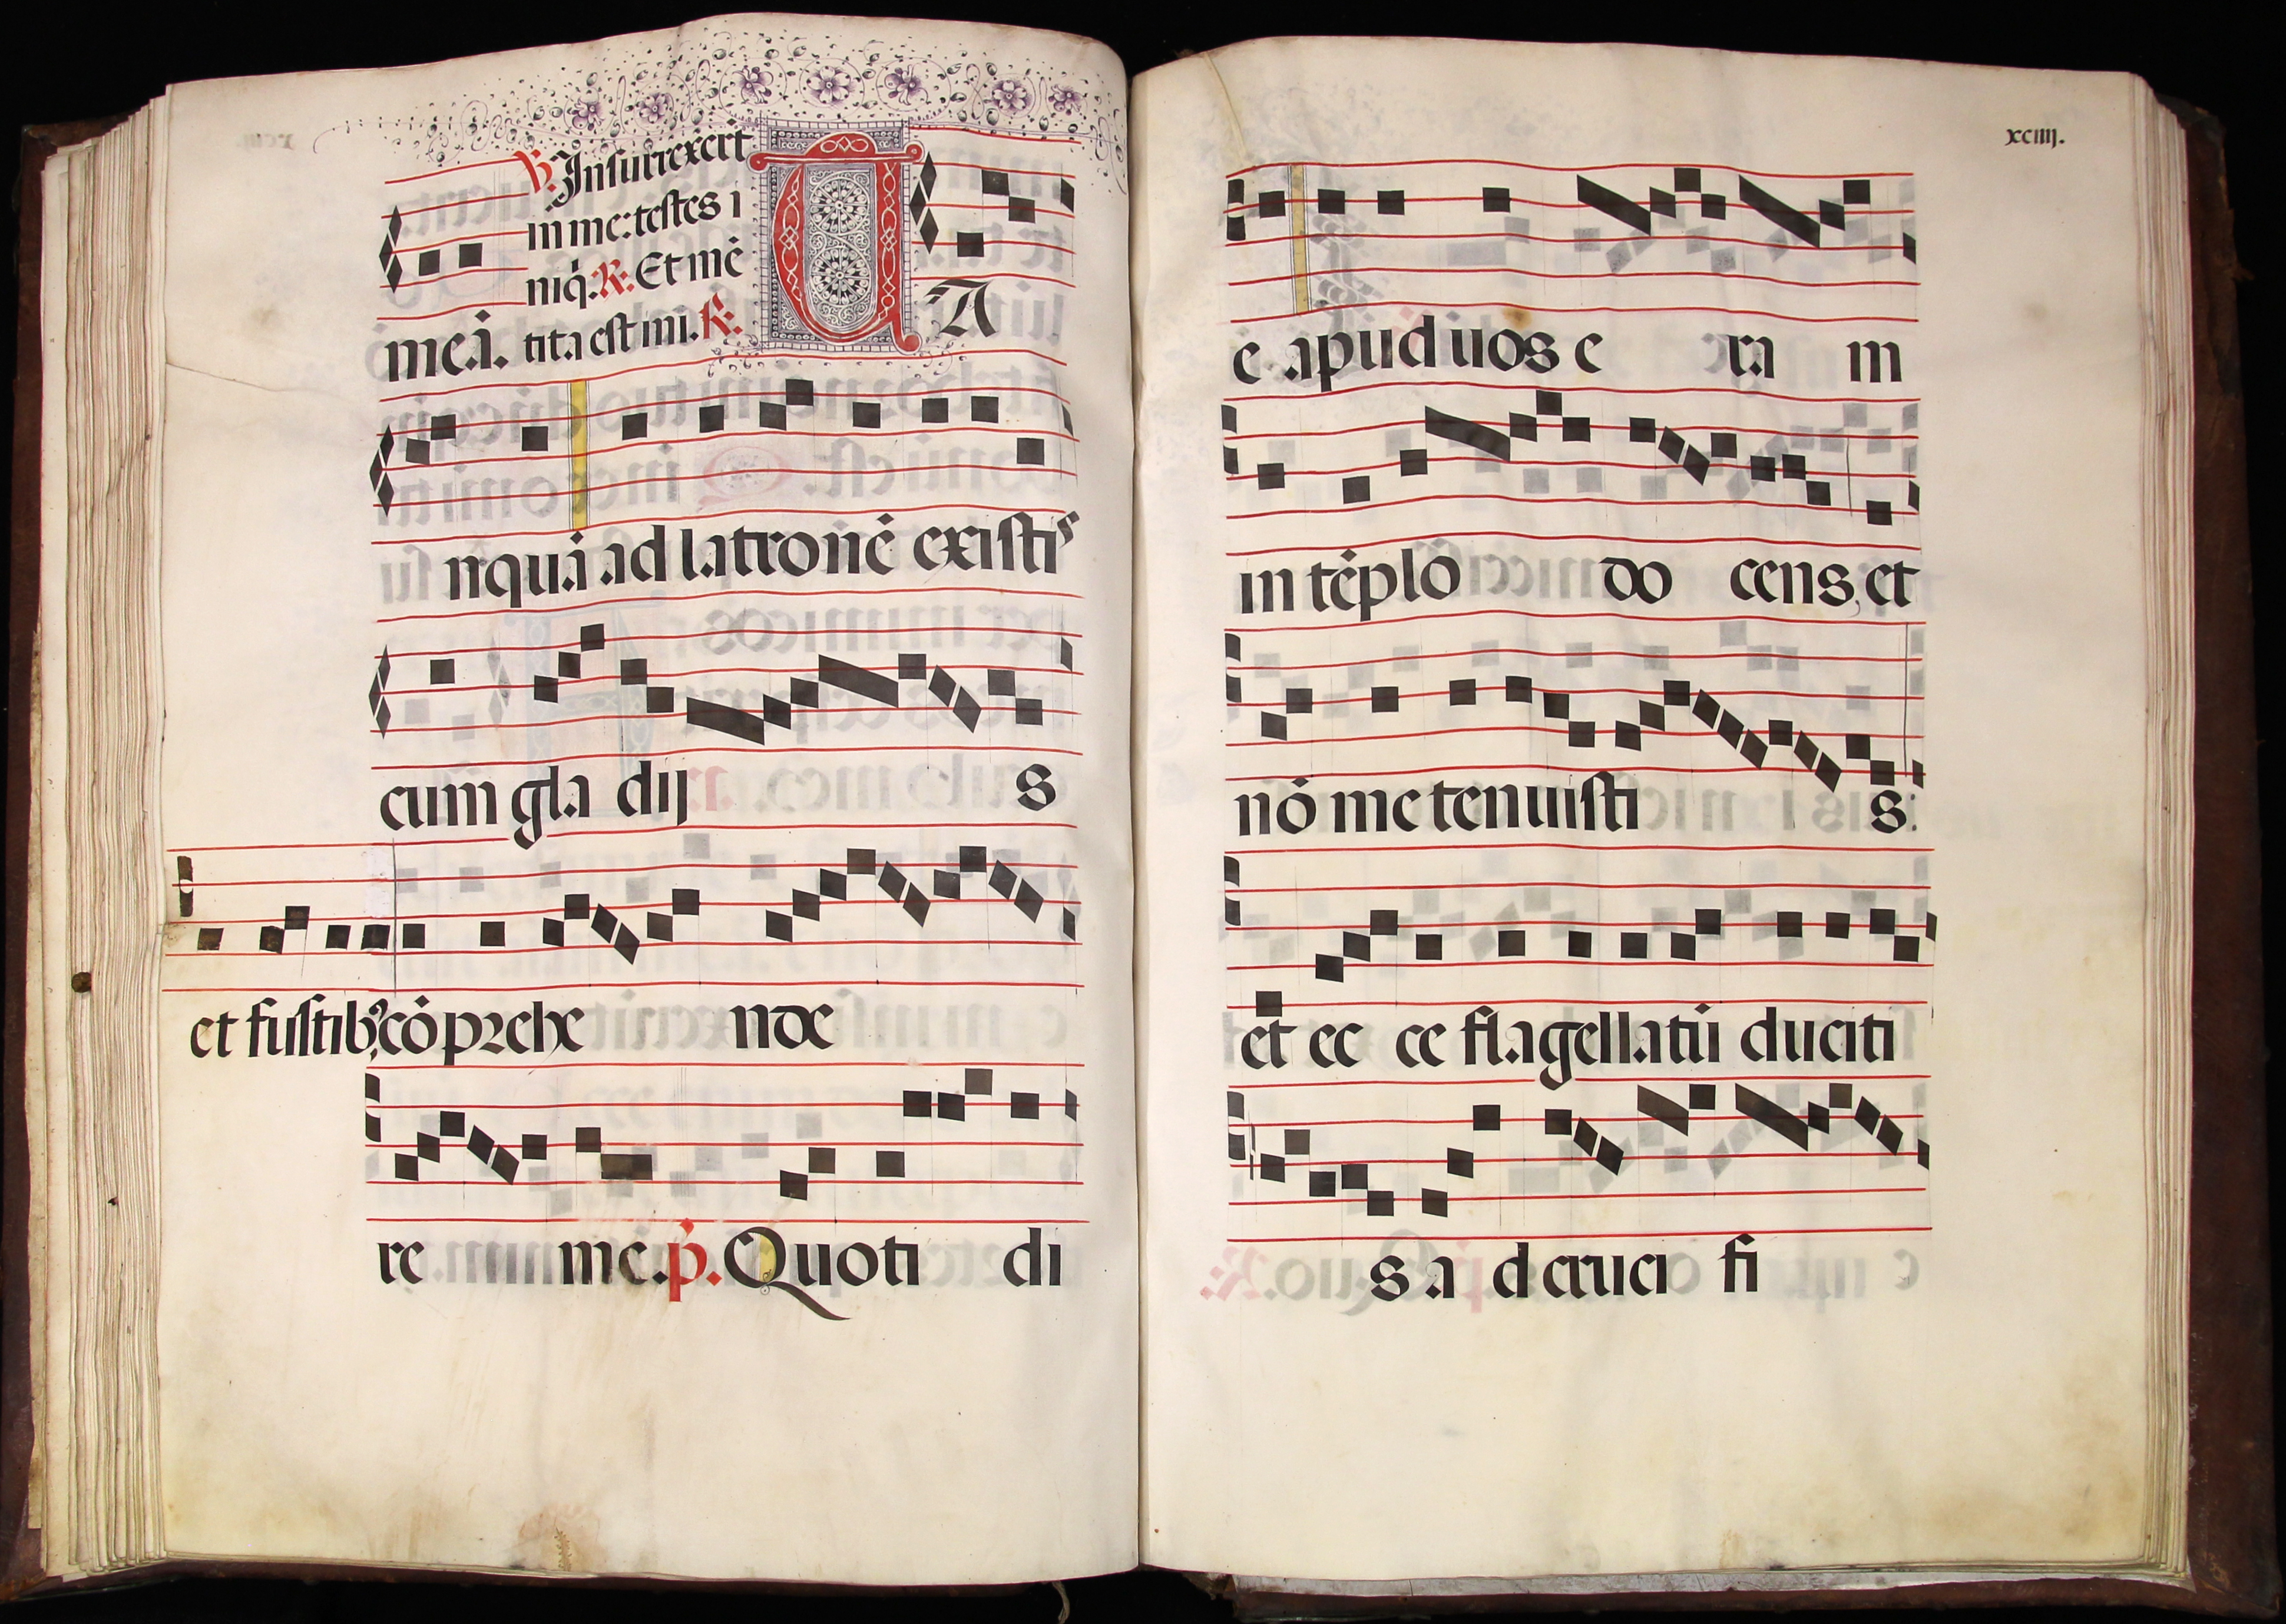 ℣. Insurrexert
in me: testes i
niq̄. ℟. Et mē
meā. tita est mi. ℟.
TA
nquā ad latronē existiˢ
cum gla dij s
et fustibꝰ, cōprehe nde
re me. p̄. Quoti di
xciiij.
e apud uos e ra m
in tēplo do cens, et
nō me tenuisti s:
et ec ce flagellatū duciti
s a d cruci fi